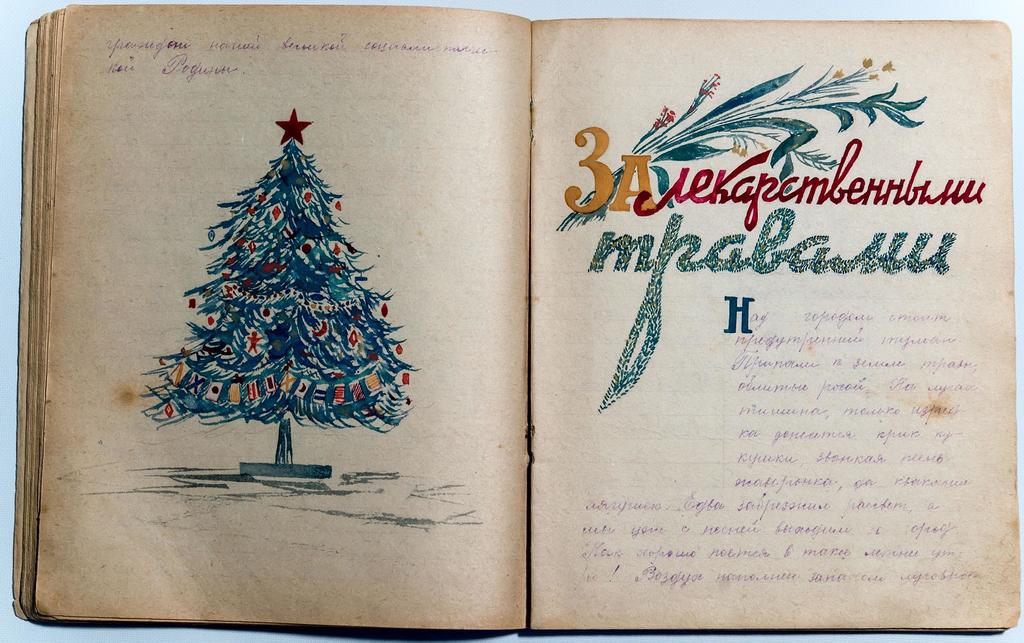 граждан нашей великой социалистичес-
кой Родины.
За лекарственными
травами
Над городом стоит
предутренний туман.
Припали к земле травы,
облитые росой. На лугах
тишина, только изред-
ка донесется крик ку-
кушки, звонкая песнь
жаворонка, да кваканье
лягушек. Едва забрезжил рассвет, а
мы уже с песней выходим за город.
Как хорошо поется в такое летнее ут-
ро! Воздух наполнен запахом